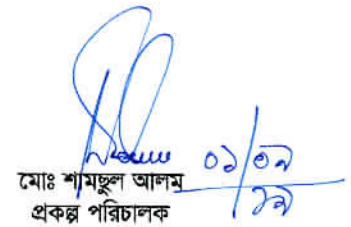 ০১/০৭/১৯
মোঃ শামছুল আলম
প্রকল্প পরিচালক